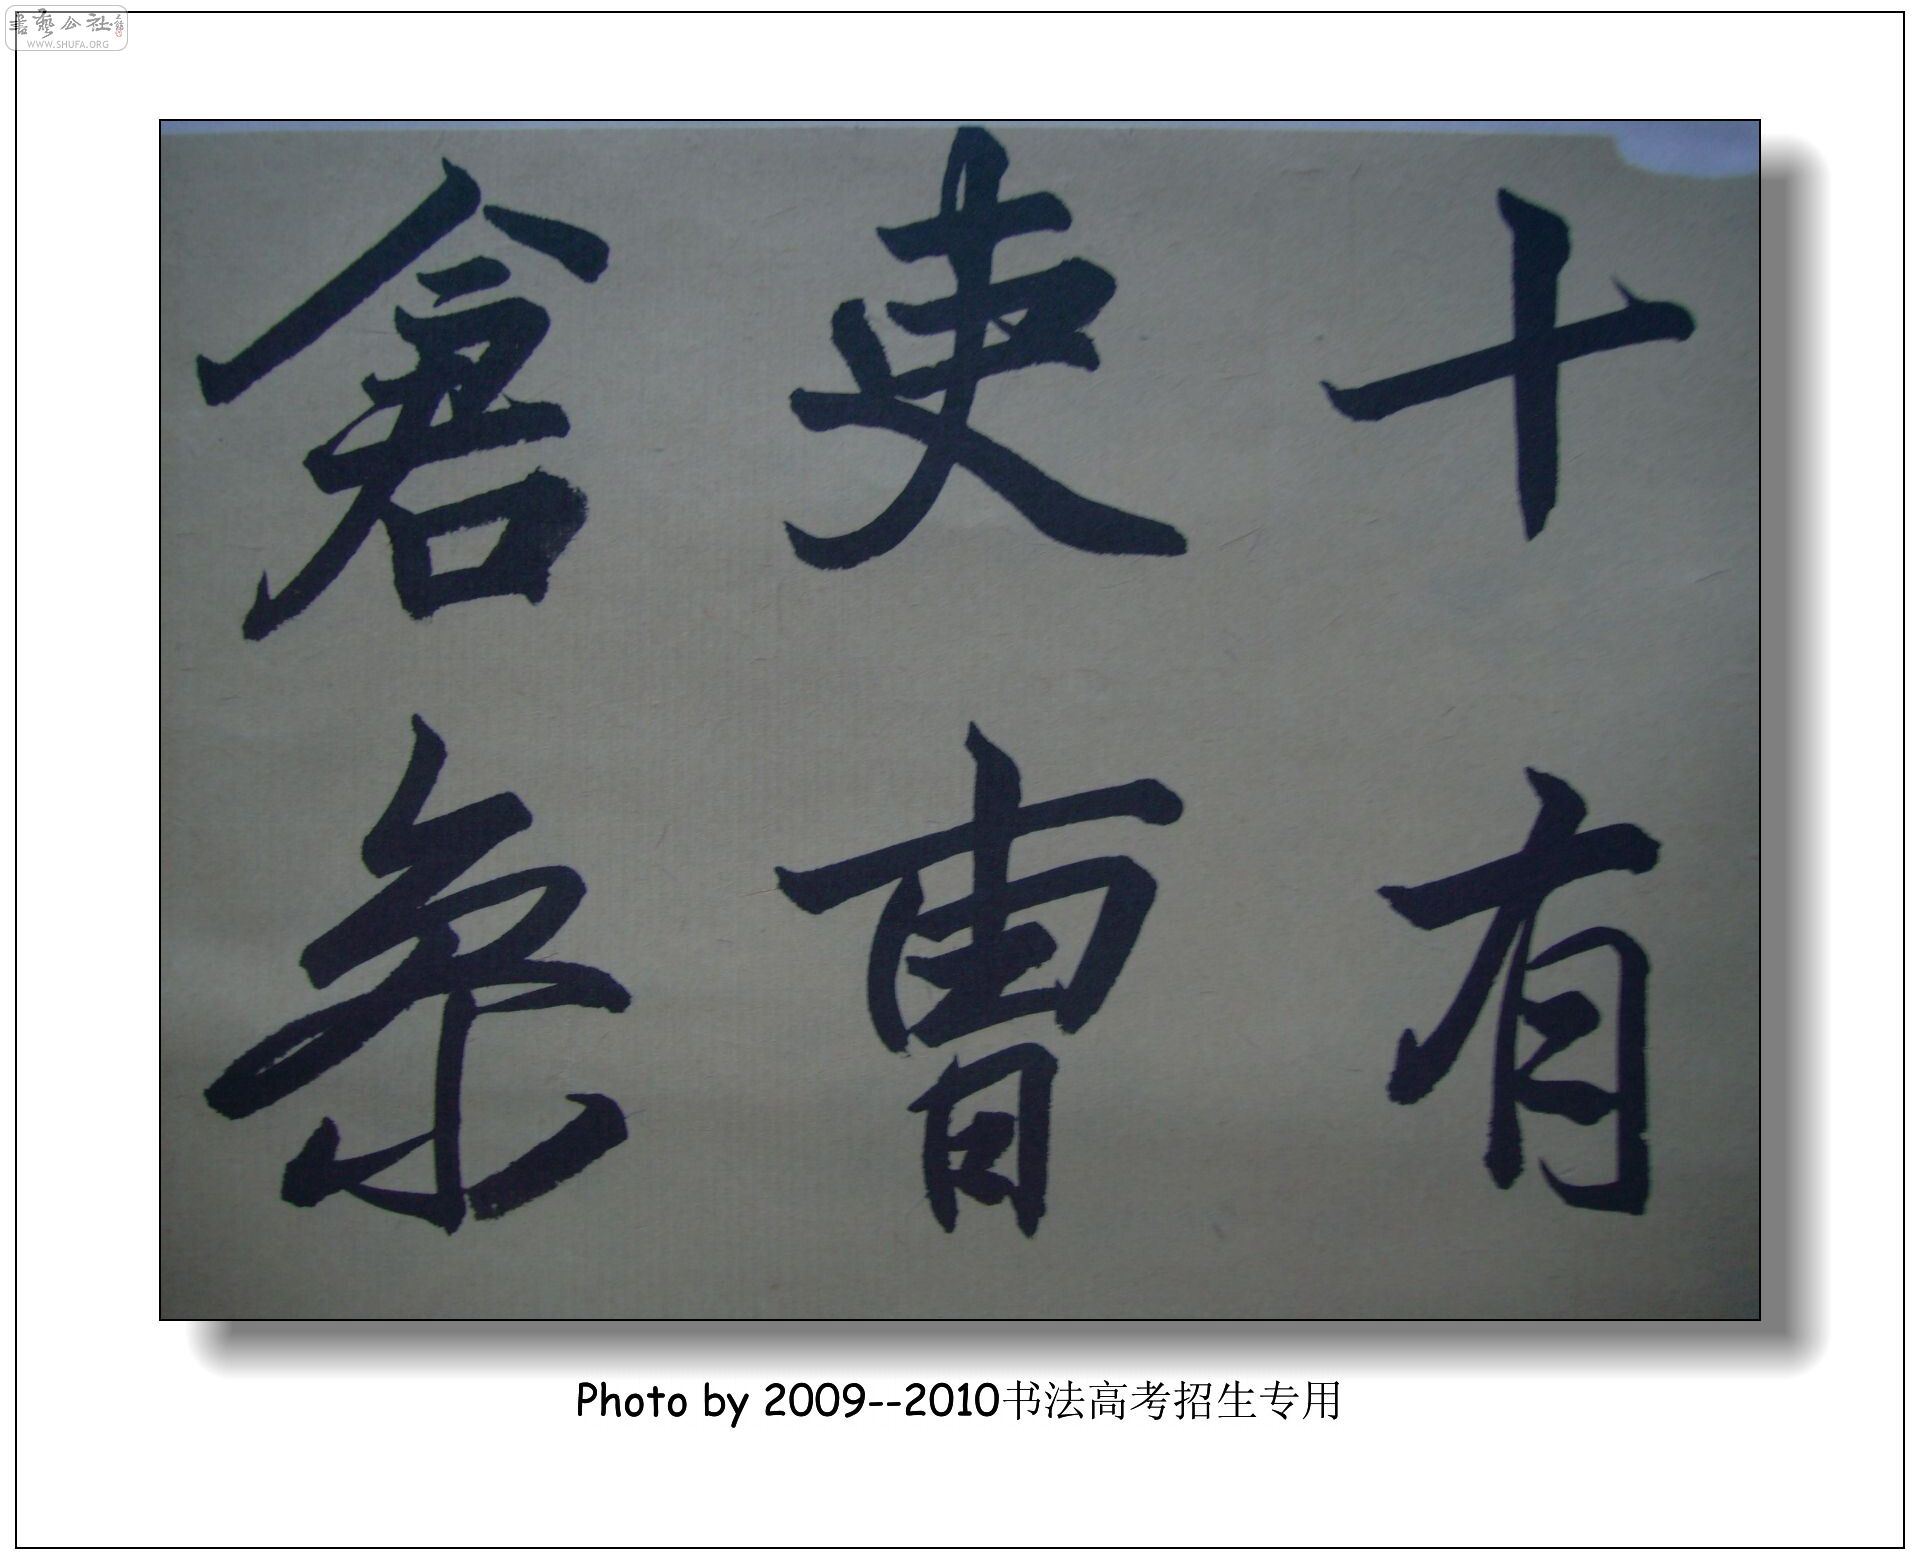 書藝公社
WWW.SHUFA.ORG
十有
吏曹
倉參
Photo by 2009--2010书法高考招生专用